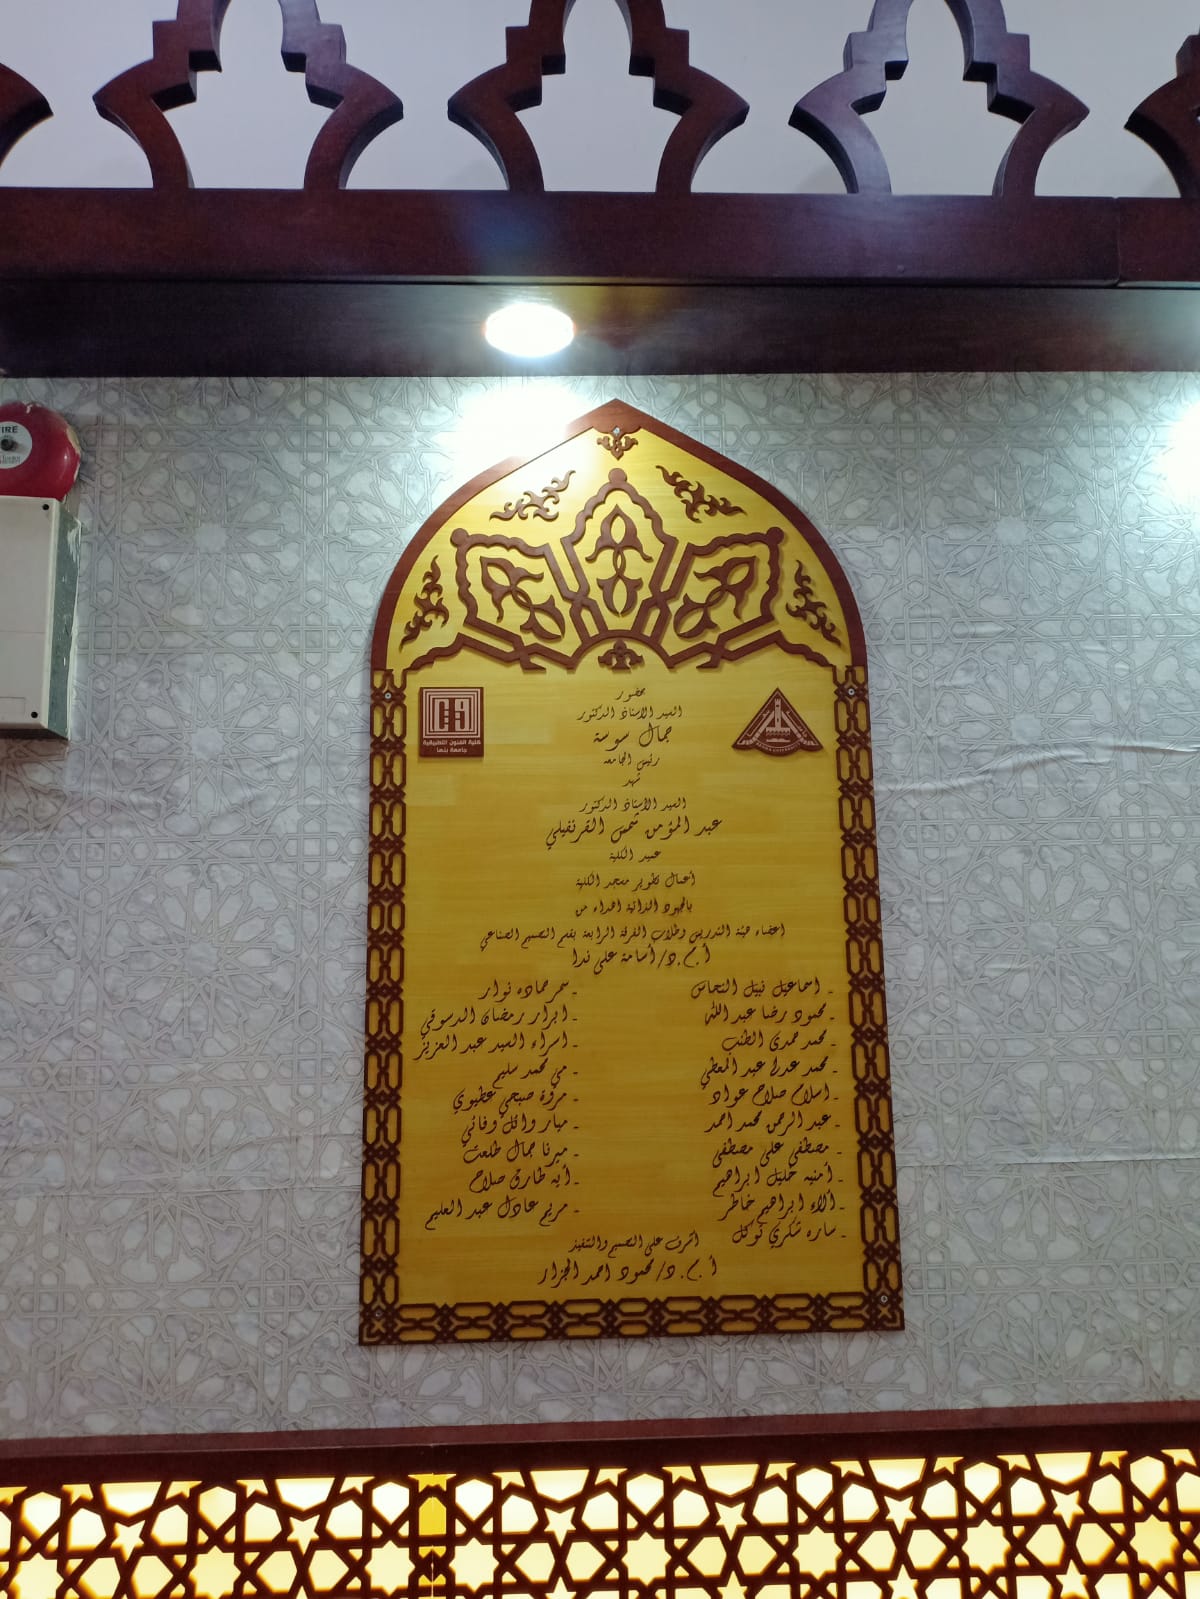 FIRE
بحضور
السيد الاستاذ الدكتور
جمال سوسة
رئيس الجامعه
شهد
السيد الأستاذ الدكتور
عبد المؤمن شمس القرنفيلي
عميد الكلية
أعمال تطوير مسجد الكلية
بالجهود الذاتية اهداء من
اعضاء هيئة التدريس وطلاب الفرقة الرابعة بقسم التصميم الصناعي
أ.م.د/ أسامة على ندا
- اسماعيل نبيل النحاس
- محمود رضا عبد اللاه
- محمد حمدى الطنب
- محمد عدلى عبد المعطي
- اسلام صلاح عواد
- عبد الرحمن محمد احمد
- مصطفى على مصطفى
- أمنيه خليل ابراهيم
- ألاء ابراهيم خاطر
- ساره شكري توكل
- سمر حماده نوار
- ابرار رمضان الدسوقي
- اسراء السيد عبد العزيز
- مي محمد سليم
- مروة صبحي عطيوي
- ميار وائل وفائي
- ميرنا جمال طلعت
- أيه طارق صلاح
- مريم عادل عبد العليم
أشرف على التصميم والتنفيذ
أ.م.د/ محمود احمد الجزار
كلية الفنون التطبيقية
جامعة بنها
BENHA UNIVERSITY